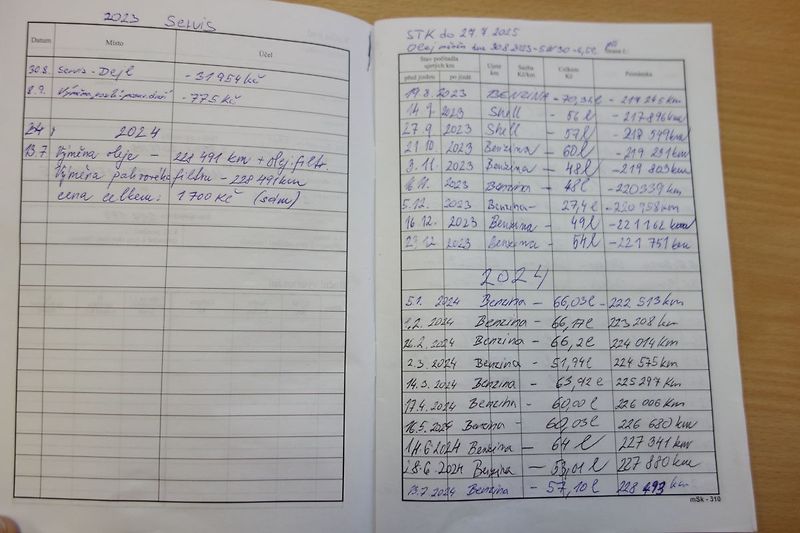 2023 Servis
Datum Místo Účel
30.8. Servis - Dejl - 31954 Kč
8.9. - 775 Kč
2024
13.7 Výměna oleje - 228 491 km + olej. filtr.
Výměna palivového filtru - 228 491 km
cena celkem: 1 700 Kč (sám)
STK do 27.7 2025
Stav počitadla ujetých km Ujeto km Sazba Kč/km Celkem Kč Poznámka
před jízdou po jízdě
19.8. 2023 BENZINA - 70,34l - 217 245 km
14 9. 2023 Shell - 56 l - 217 896 km
27.9 2023 Shell - 57 l
21 10. 2023 Benzina - 60 l - 219 231 km
3. 11. 2023 Benzina - 48 l - 219 803 km
2023 Benzina - 48 l - 220339 km
5.12. 2023 Benzina - 27,4 l - 220 758 km
16 12. 2023 Benzina - 49 l - 221 162 km
23 12 2023 Benzina - 54 l - 221 751 km
2024
5.1. 2024 Benzina - 66,03 l - 222 513 km
1.2. 2024 Benzina - 66,17 l 223 208 km
2024 Benzina - 66,2 l - 224 014 km
2.3. 2024 Benzina - 51,94 l 224 575 km
14.3. 2024 Benzina - 63,92 l - 225 297 km
17.4. 2024 Benzina - 60,00 l 226 006 km
16.5. 2024 Benzina - 60,03 l - 226 680 km
14.6 2024 Benzina - 64 l - 227 341 km
28.6. 2024 Benzina - 53,01 l - 227 880 km
13.7 2024 Benzina - 57,10 l 228 493 km
mSk - 310